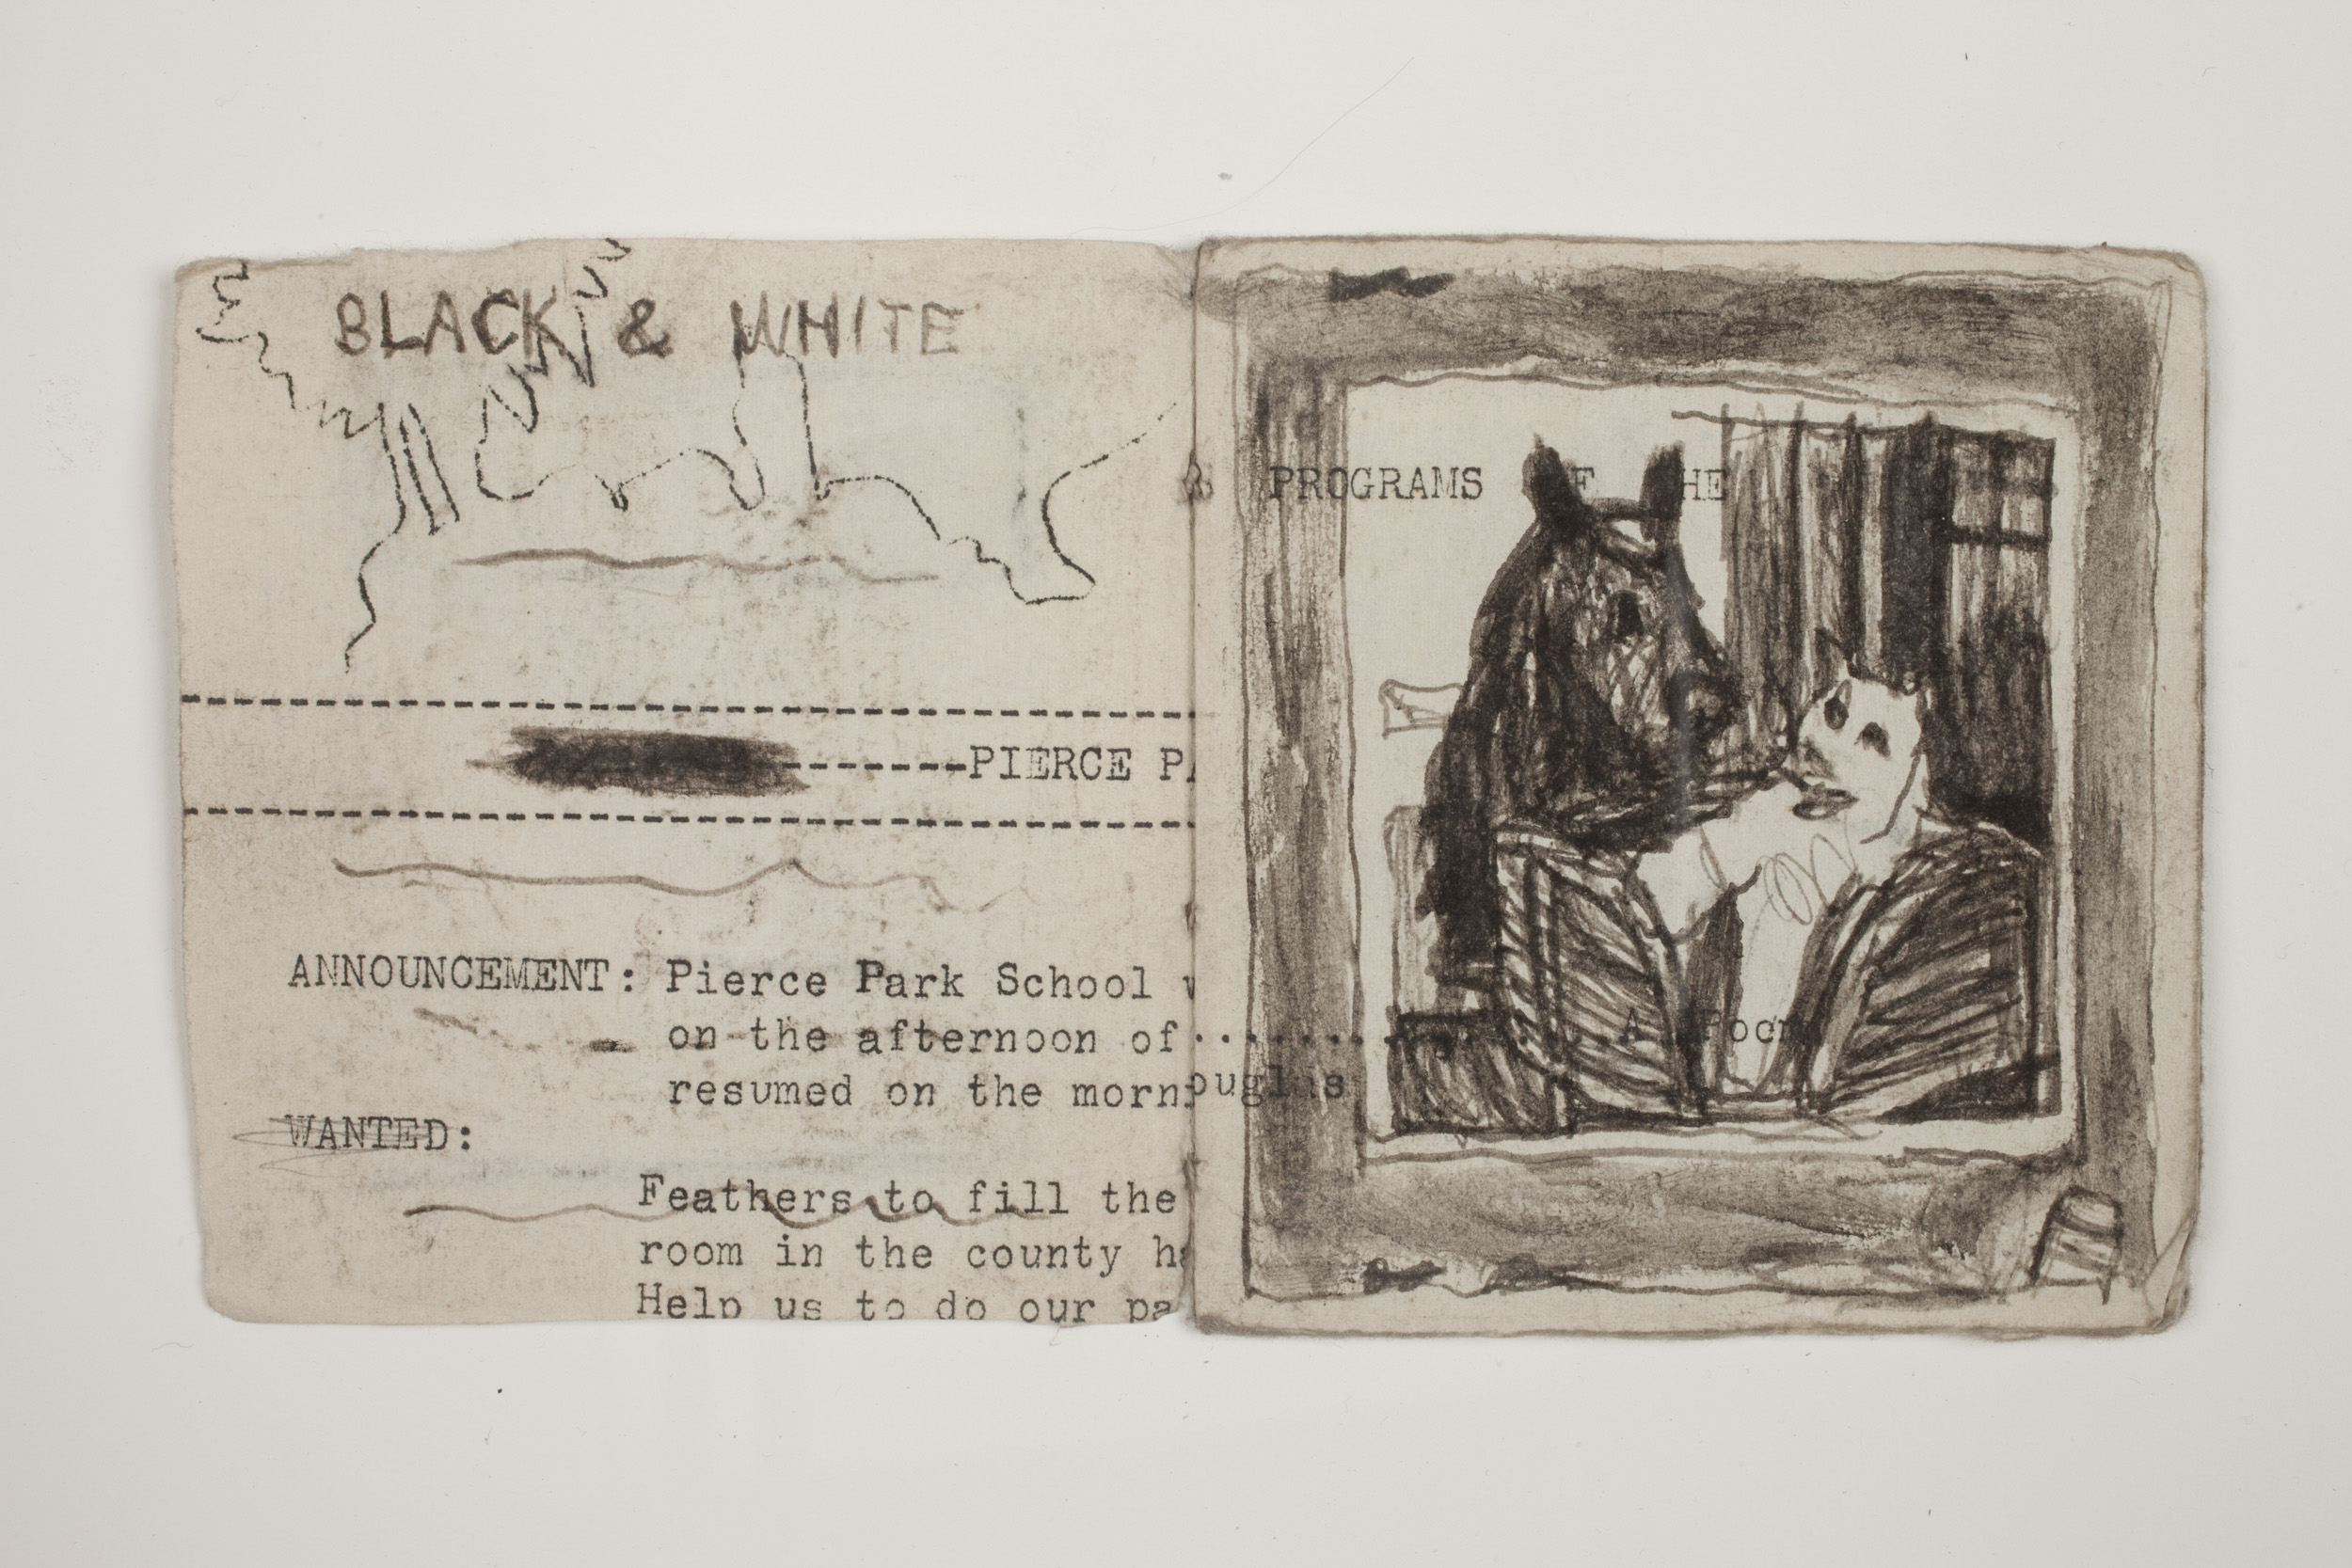 BLACK & WHITE
PIERCE
ANNOUNCEMENT: Pierce Park School
on the afternoon of
resumed on the morn
WANTED:
Feathers to fill the
room in the county
Help us to do our
PROGRAMS
A